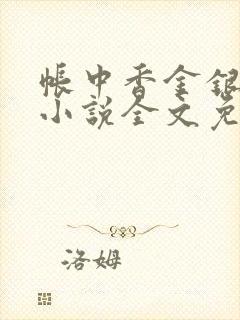 帐中香金银
小说全文免
洛姆